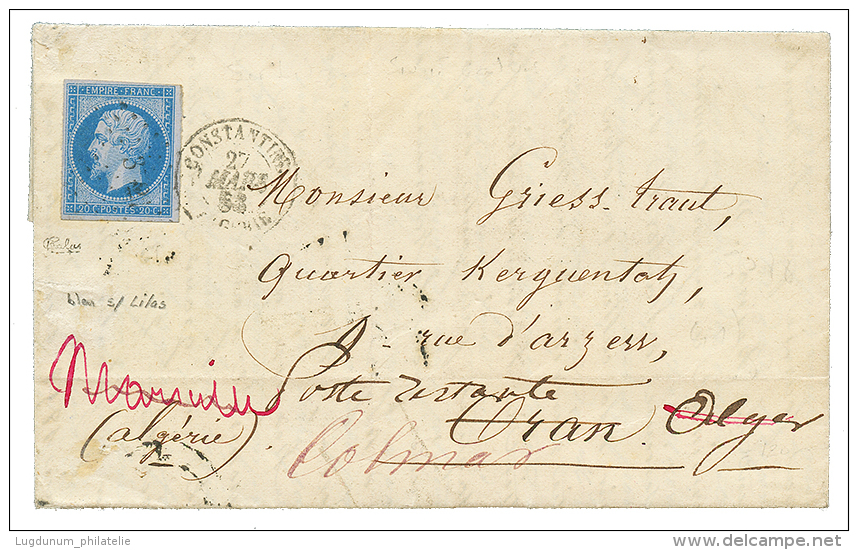 EMPIRE FRANC.
20 C. POSTES. 20 C.
CONSTANTINE
27
MARS
58
Monsieur Griess-traut,
quartier Kerguentah,
rue d'arzew,
Poste restante
Marseille
(algérie). Oran. Alger
Colmar
bleu s/ Lilas
Lugdunum_philatelie
www.delcampe.net